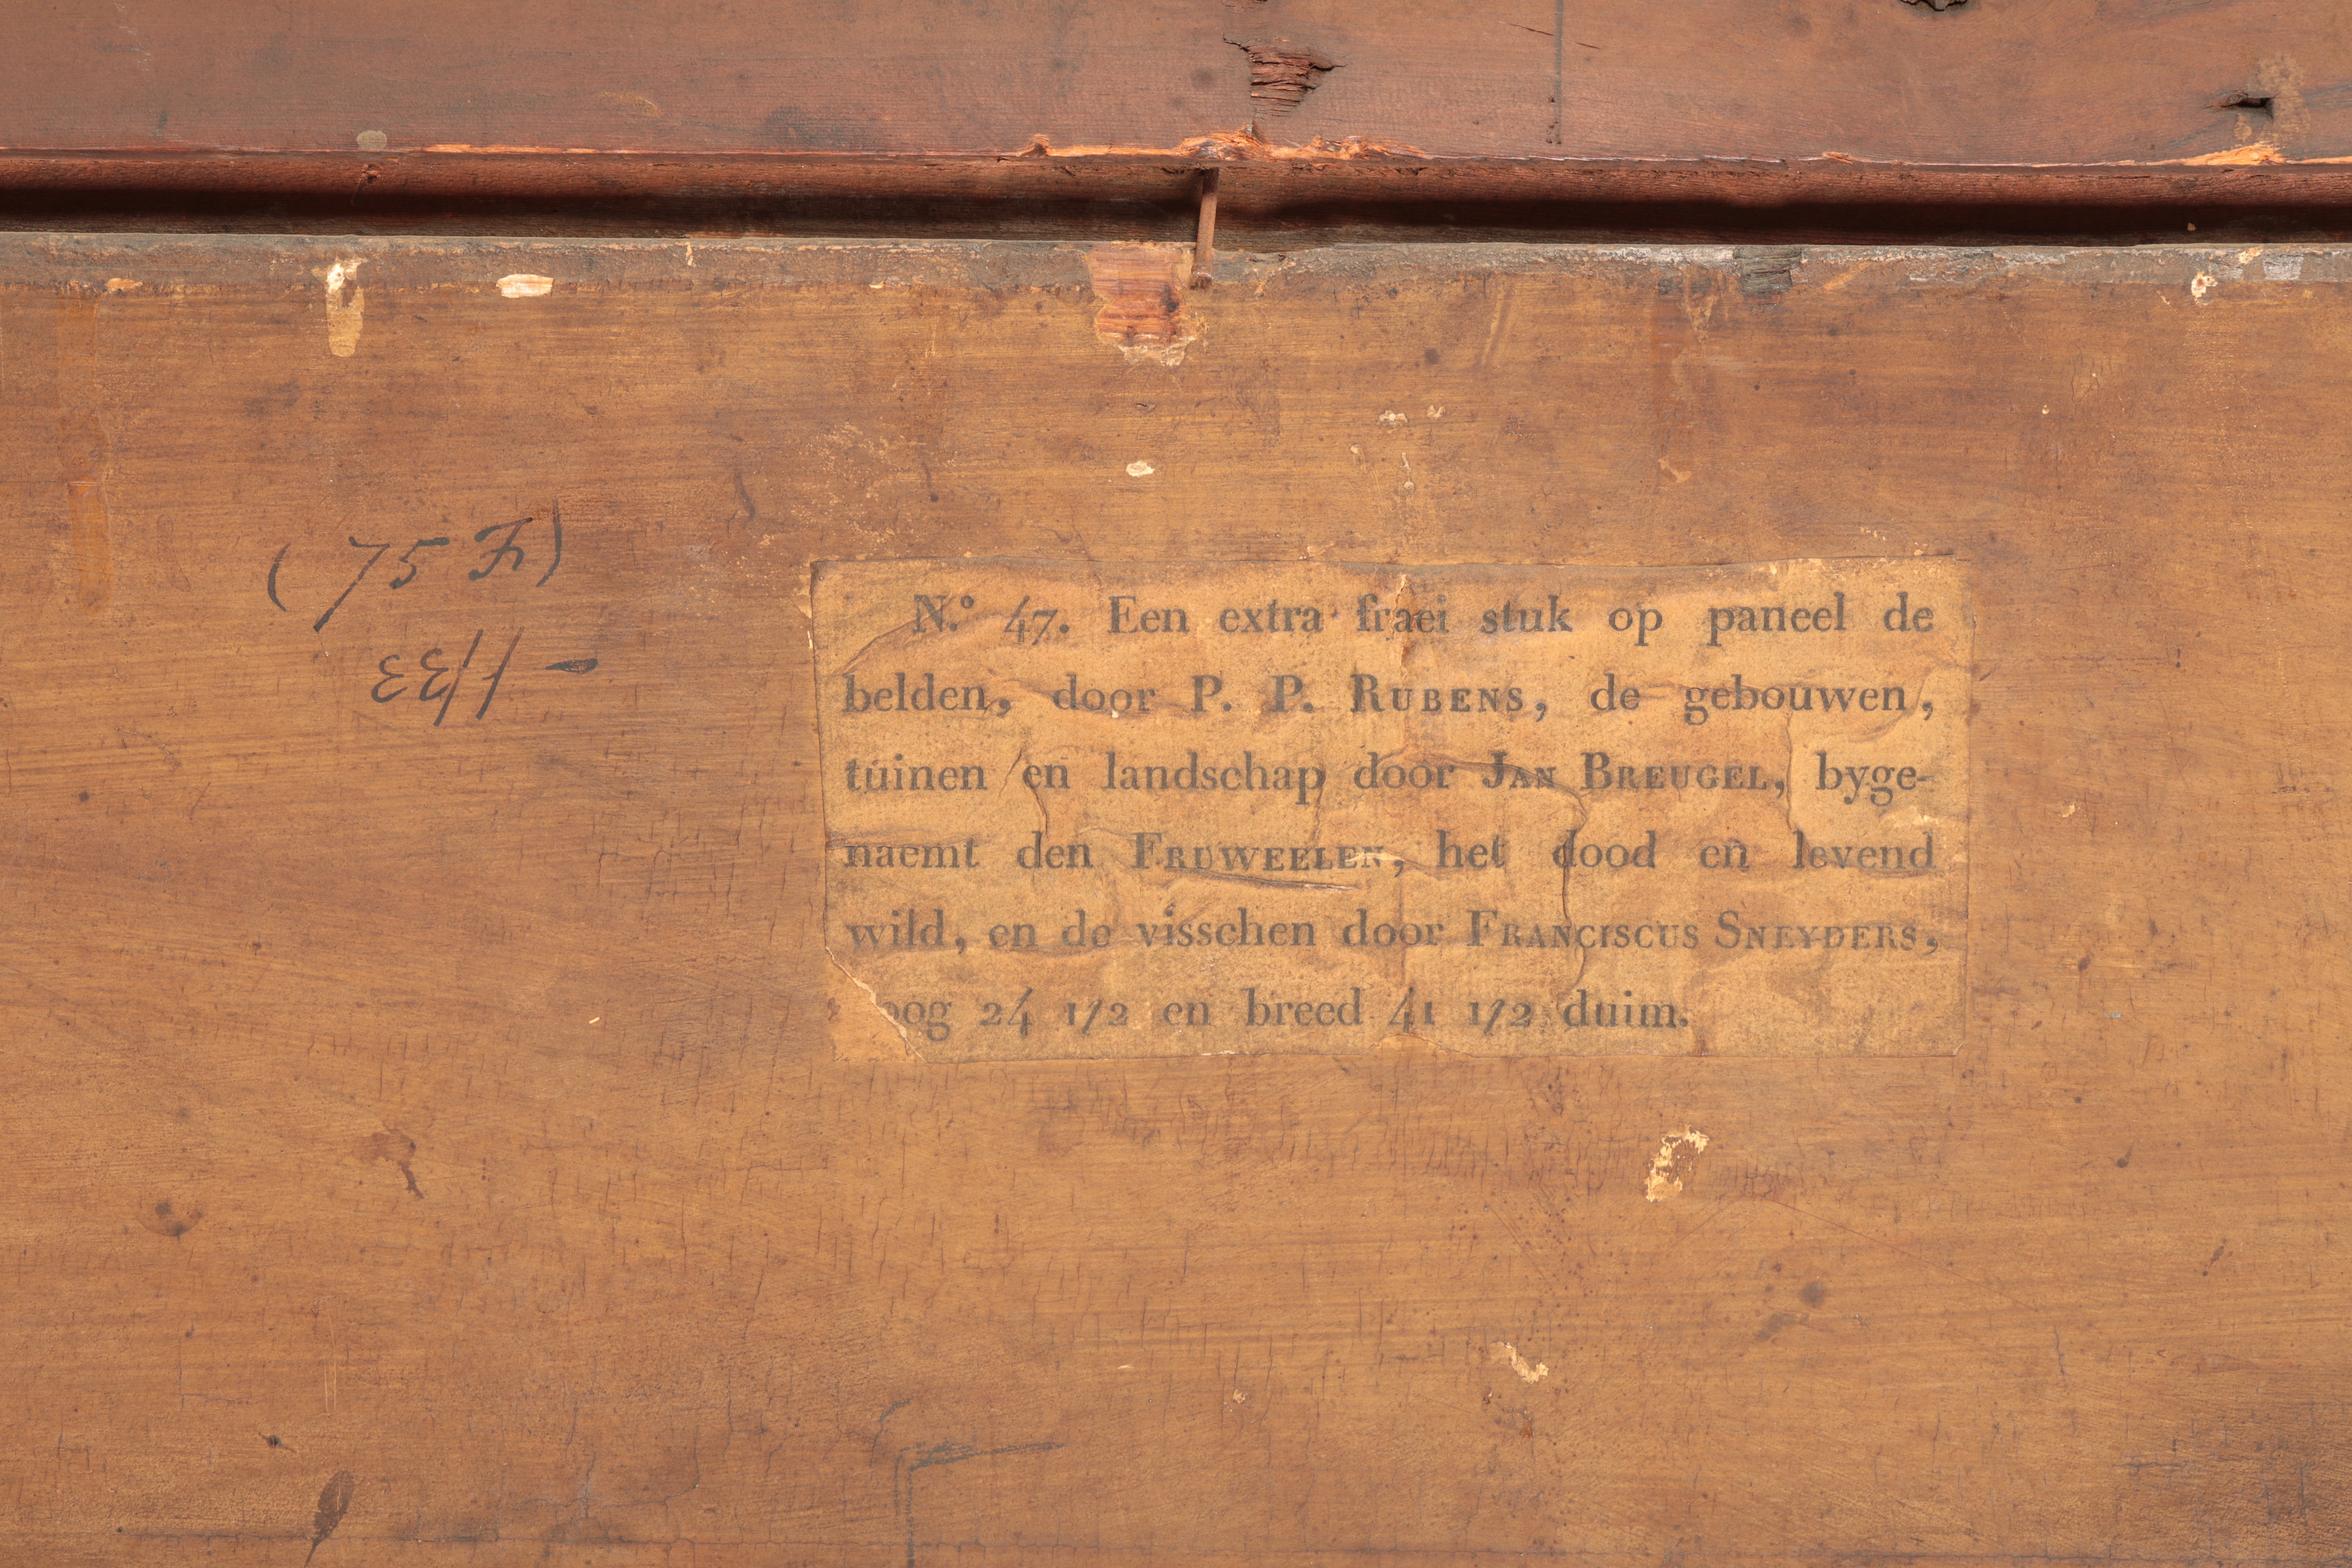 (75 Fr)
N.° 47. Een extra fraei stuk op paneel de
belden, door P. P. RUBENS, de gebouwen,
tuinen en landschap door JAN BREUGEL, byge-
naemt den FRUWEELEN, het dood en levend
wild, en de visschen door FRANCISCUS SNEYDERS,
oog 24 1/2 en breed 41 1/2 duim.